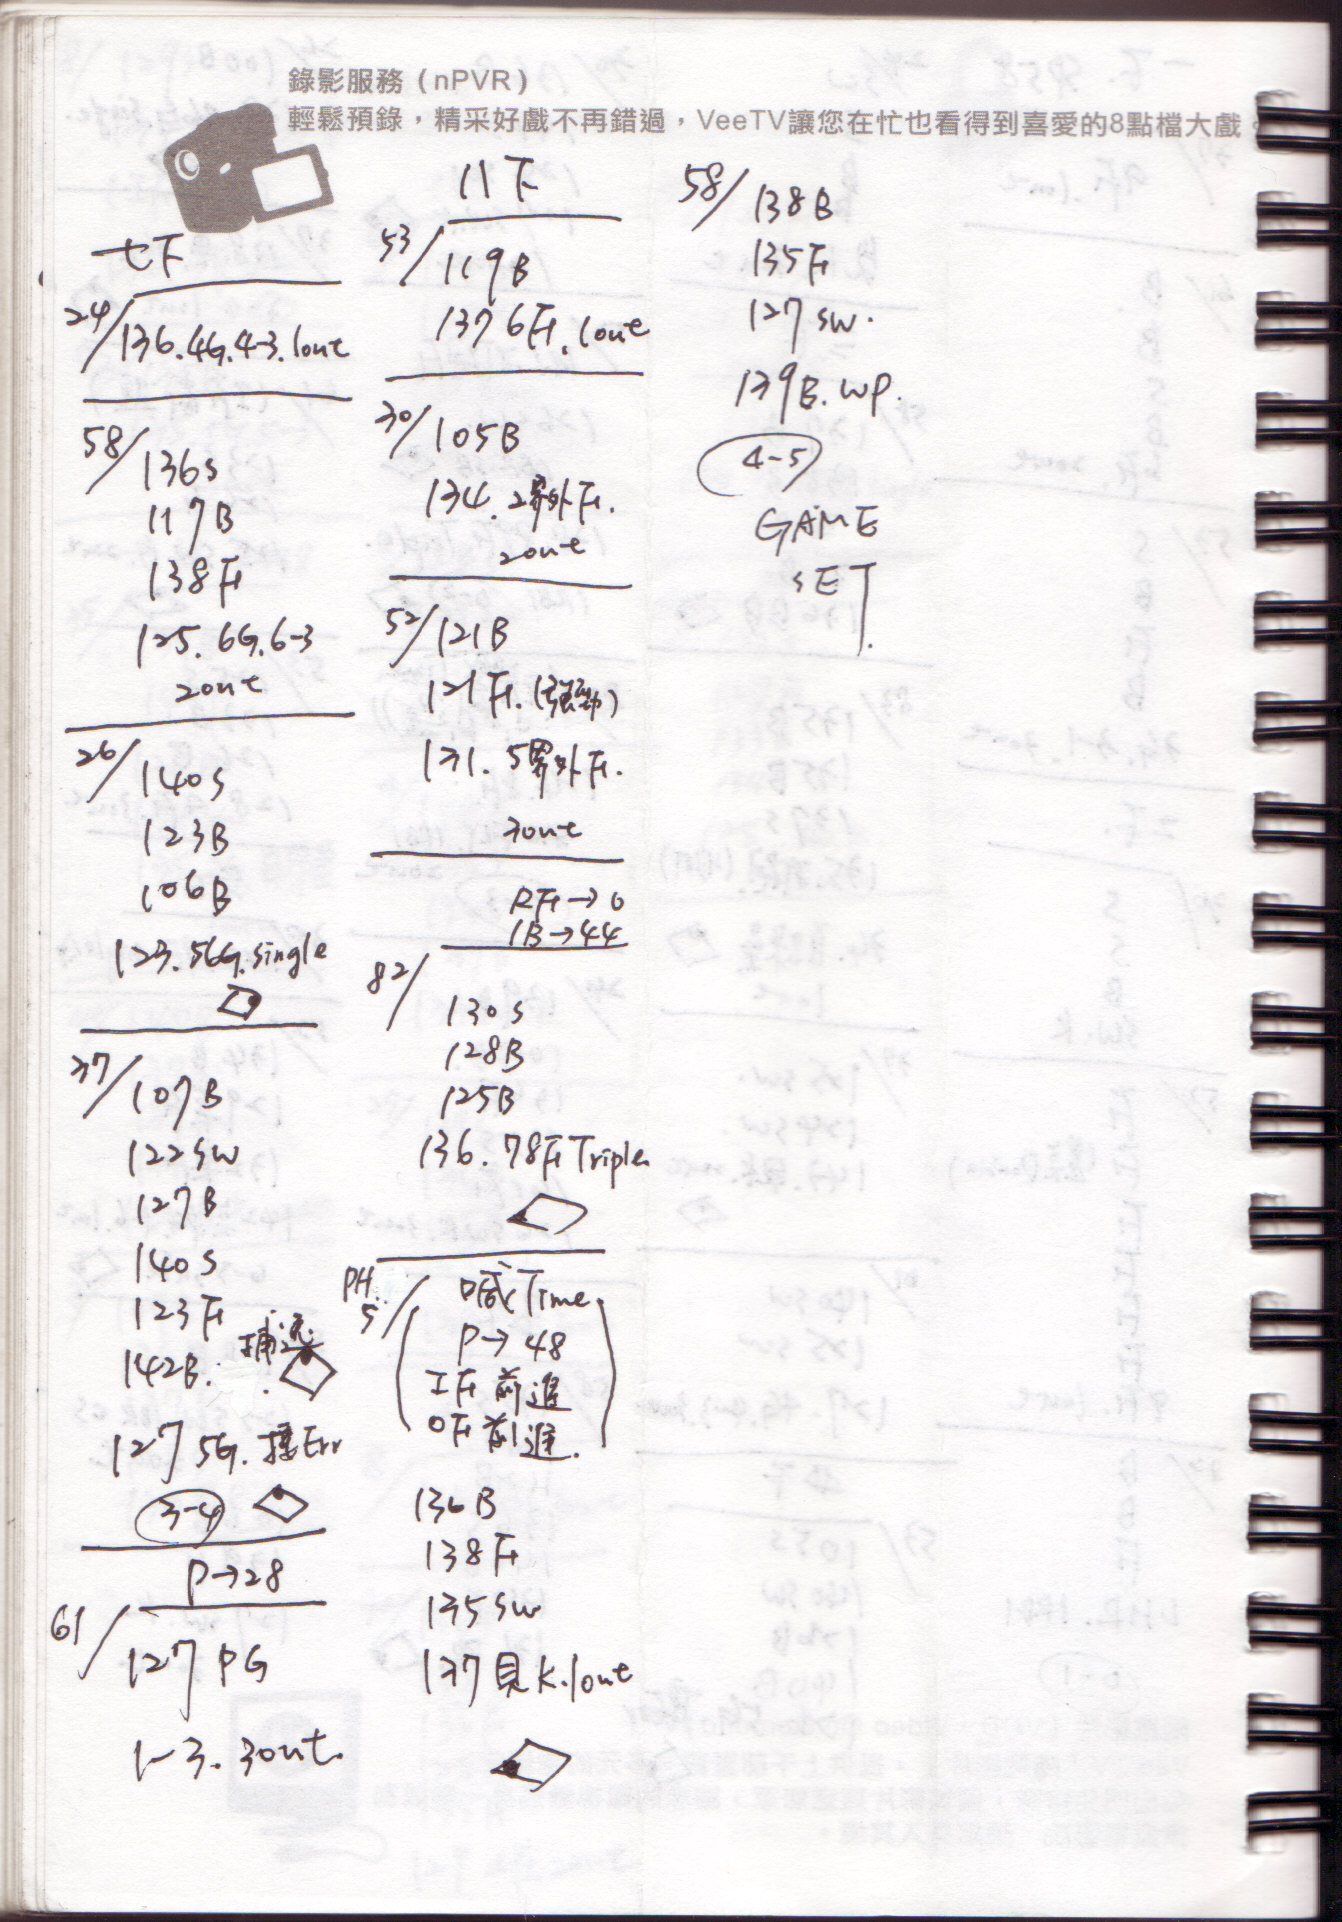 錄影服務（nPVR）
輕鬆預錄，精采好戲不再錯過，VeeTV讓您在忙也看得到喜愛的8點檔大戲。
七下
24/
136.4G.4-3.1out
58/
136S
117B
138F
125.6G.6-3
2out
26/
140S
123B
106B
123.56G.single
37/
107B
122SW
127B
140S
123F
142B.
127 5G. Err
3-4
P→28
61/
127 PG
1-3. 3out.
11下
53/
119B
137 6F. 1out
30/
105B
134. 2界外F.
2out
52/
121B
121F. (強勁)
131. 5界外F.
3out
RF→0
1B→44
82/
130S
128B
125B
136. 78F Triple
PH
5/
喊Time
P→48
IF前進
OF前進.
136B
138F
135SW
137見K.1out
58/
138B
135F
127 SW.
139B. WP.
4-5
GAME
SET.